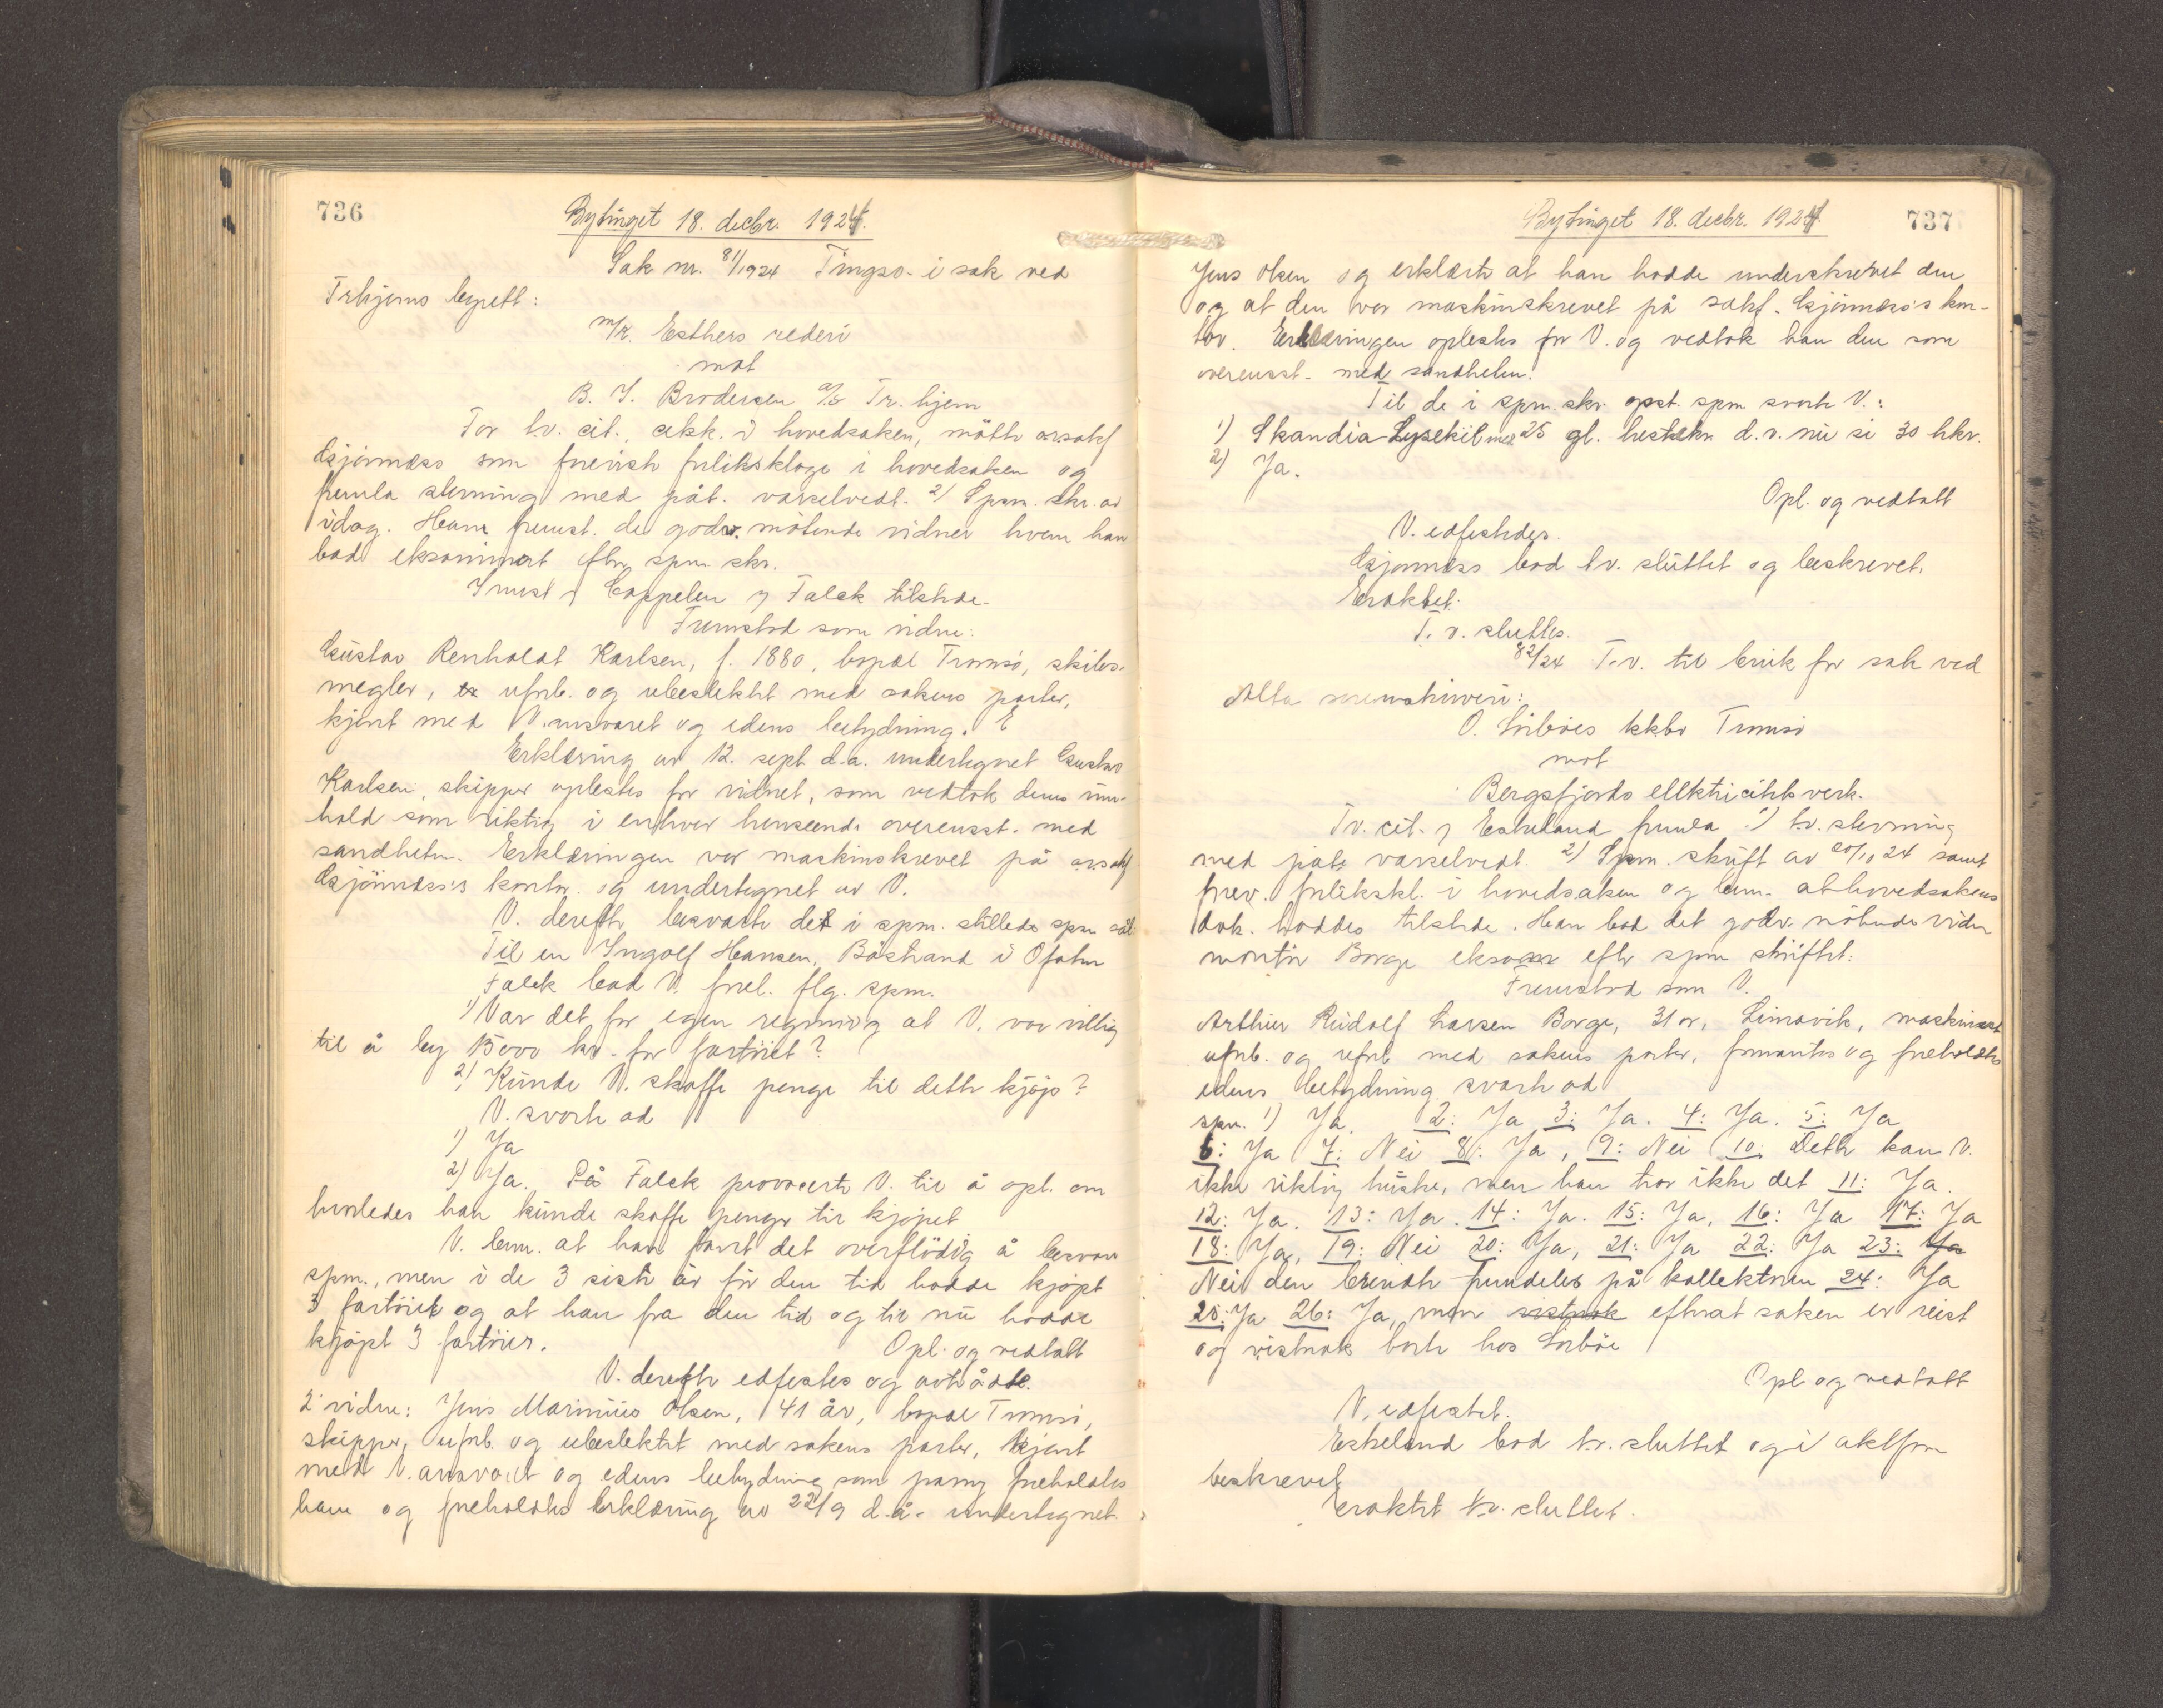 736
Bytinget 18. decbr. 1924.
Sak nr. 81/1924 Tingsv. i sak ved
Trhjems byrett:
m/k. Esthers rederi
mot
B. I. Brodersen a/s Tr. hjem
For t.v. cit., akk. i hovedsaken, mötte orsakf
Gjönnæss som frevish frlikskloge i hovedsaken og
fremla stevning med påt. varselvedt. 2) Spm. skr. av
idag. Han fremst. de godv. mötende vidner hvem han
bad eksaminert eftr spm. skr.
Innst. Coppelen og Falck tilstede.
Fremstod som vidne:
Gustav Renholdt Karlsen, f. 1880, bopæl Tromsö, skibs-
megler, er ufrb. og ubeslektet med sakens parter,
kjent med V.ansvaret og edens betydning. E
Erklæring av 12. sept d.a. undertegnet Gustav
Karlsen, skipper oplestes for vidnet, som vedtok dens inn-
hold som riktig i enhver henseende overensst. med
sandheten. Erklæringen var maskinskrevet på orsakf
Gjönnæss's kontor og undertegnet av V.
V. dereftr besvarte det i spm. stillede spm sål
Til en Ingolf Hansen, Båstrand i Ofoten
Falck bad V. frel. flg. spm.
1) Var det for egen regning at V. var villig
til å by 15000 kr. for fartöiet?
2) Kunde V. skaffe penge til dette kjöp?
V. svarte ad
1) Ja
2) Ja. På Falck provoserte V. til å opl. om
hvorledes han kunde skaffe penger til kjöpet
V. bem. at han fant det overflödig å besvare
spm., men i de 3 siste år för den tid hadde kjöpt
3 fartöier og at han fra den tid og til nu hadde
kjöpt 3 fartöier.
Opl. og vedtatt
V. dereftr edfestes og avtrådte.
2 vidne: Jens Marinius Olsen, 41 år, bopæl Tromsö,
skipper, ufrb. og ubeslektet med sakens parter, kjent
med V. ansvaret og edens betydning som påny freholdtes
ham og freholdtes Erklæring av 22/9 d.å. undertegnet
737
Bytinget 18. decbr. 1924
Jens Olsen og erklærte at han hadde underskrevet den
og at den var maskinskrevet på sakf. Gjönnæss's kon-
tor. Erklæringen oplestes for V. og vedtok han den som
overensst. med sandheten.
Til de i spm. skr. opst. spm svarte V.:
1) Skandia Lysekil med 25 gl. hestekr. d.v. nu si 30 hkr.
2) Ja.
Opl. og vedtatt
V. edfestedes.
Gjönnæss bad t.v. sluttet og beskrevet.
Eraktet:
T. v. sluttes.
82/24 T.v. til bruk for sak ved
Alta sorenskriveri:
O. Sörböes kkbo Tromsö
mot
Bergsfjords ellektricitetsverk.
Tv. cit. og Eskeland fremla 1) t.v. stevning
med påt. varselvedt. 2) Spm. skrift av 20/10 24 samt
frev. frlikskl. i hovedsaken og bem. at hovedsakens
dok. haddes tilstede. Han bad det godv. mötende vidne
montör Borge eksam eftr spm skriftet:
Fremstod som V.
Arthur Rudolf Larsen Borge, 31 år, Simavik, maskinist
ufrb. og ufrb med sakens parter, formantes og freholdtes
edens betydning svarte ad
spm. 1) Ja. 2: Ja 3: Ja. 4: Ja. 5: Ja
6: Ja 7: Nei 8: Ja, 9: Nei 10: Dette kan V.
ikke riktig huske, men han tror ikke det 11: Ja.
12: Ja. 13: Ja. 14: Ja. 15: Ja, 16: Ja 17: Ja
18: Ja, 19: Nei 20: Ja, 21: Ja 22: Ja 23: Ja
Nei den brendte fremdeles på kollektoren 24: Ja
25: Ja 26: Ja, men sistnok efterat saken er reist
og vistnok borte hos Sörböe
Opl og vedtatt
V. edfestet.
Eskeland bad t.v. sluttet og i aktform
beskrevet
Eraktet t.v. sluttet.